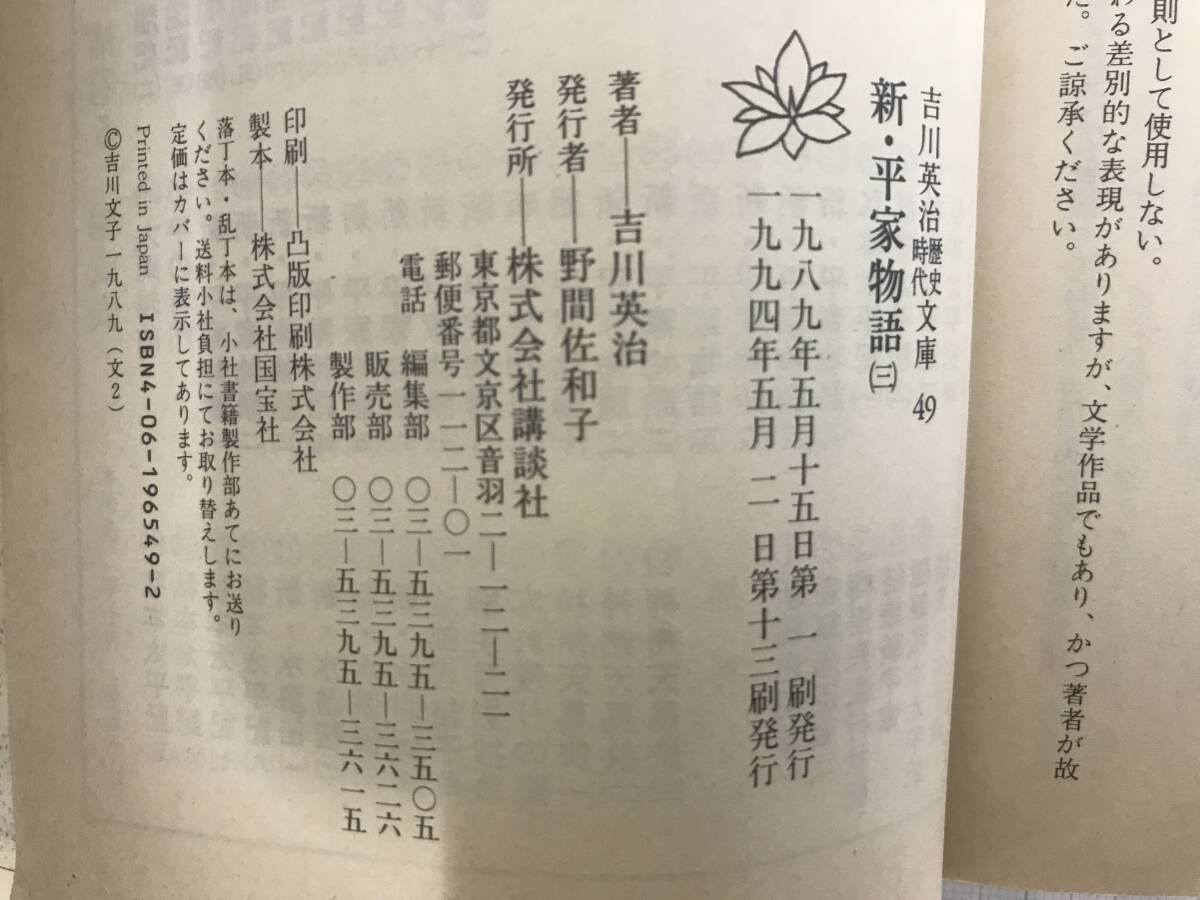 則として使用しない。
わる差別的な表現がありますが、文学作品でもあり、かつ著者が故
た。ご諒承ください。
吉川英治歴史時代文庫 49
新・平家物語㈢
一九八九年五月十五日第一刷発行
一九九四年五月二日第十三刷発行
著者——吉川英治
発行者——野間佐和子
発行所——株式会社講談社
東京都文京区音羽二—一二—二一
郵便番号一一二—〇一
電話 編集部 〇三—五三九五—三五〇五
販売部 〇三—五三九五—三六二六
製作部 〇三—五三九五—三六一五
印刷——凸版印刷株式会社
製本——株式会社国宝社
落丁本・乱丁本は、小社書籍製作部あてにお送り
ください。送料小社負担にてお取り替えします。
定価はカバーに表示してあります。
Printed in Japan ISBN4-06-196549-2
©吉川文子一九八九（文2）